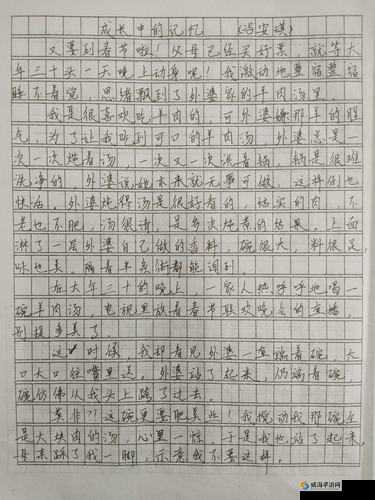 成长中的记忆
又要到春节啦！父母已经买好票，就等大
年三十头一天晚上动身呢！我激动地整宿整宿
睡不着觉，思绪飘到了外婆家的羊肉汤里。
我是很喜欢吃羊肉的，可外婆嫌那羊的膻
气，为了让我吃到可口的羊肉汤，外婆总是一
次一次炖着汤，一次又一次洗着锅，锅是很难
洗净的，外婆说她本来就无事可做，这样倒也
快活。外婆炖得汤是很好看的，结实的肉，不
老也不肥，汤很清，是多次炖着的结果，上面
淋了一层外婆自己做的香料，碗很大，料很足，
味也美，隔着半条街都能闻到。
在大年三十的晚上，一家人热呼呼地喝一
碗羊肉汤，电视里放着春节联欢晚会的直播，
别提多美了。
这时候，我却看见外婆一直端着碗，大
口大口往嘴里送，外婆站了起来，仍端着碗，
碗仿佛从我头上跨了过去。
莫非？！这碗更要肥美些！我搅动我那碗
是大块肉的汤，心里一惊，于是我也站了起来，
母亲踩了我一脚，示意我不要这样。
威海手游网